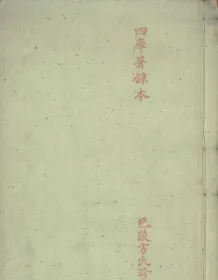 四庫著錄本
巴陵方氏珍